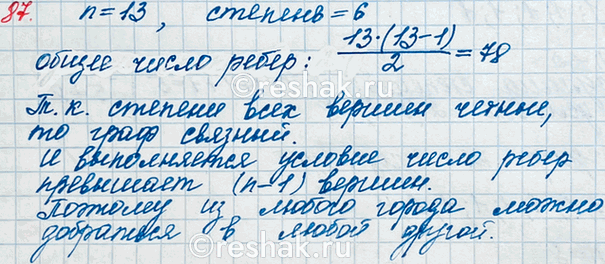 87. n=13, степень=6
общее число ребер: 13·(13-1)/2=78
Т.к. степени всех вершин четные,
то граф связный.
И выполняется условие число ребер
превышает (n-1) вершин.
Поэтому из любого города можно
добраться в любой другой.